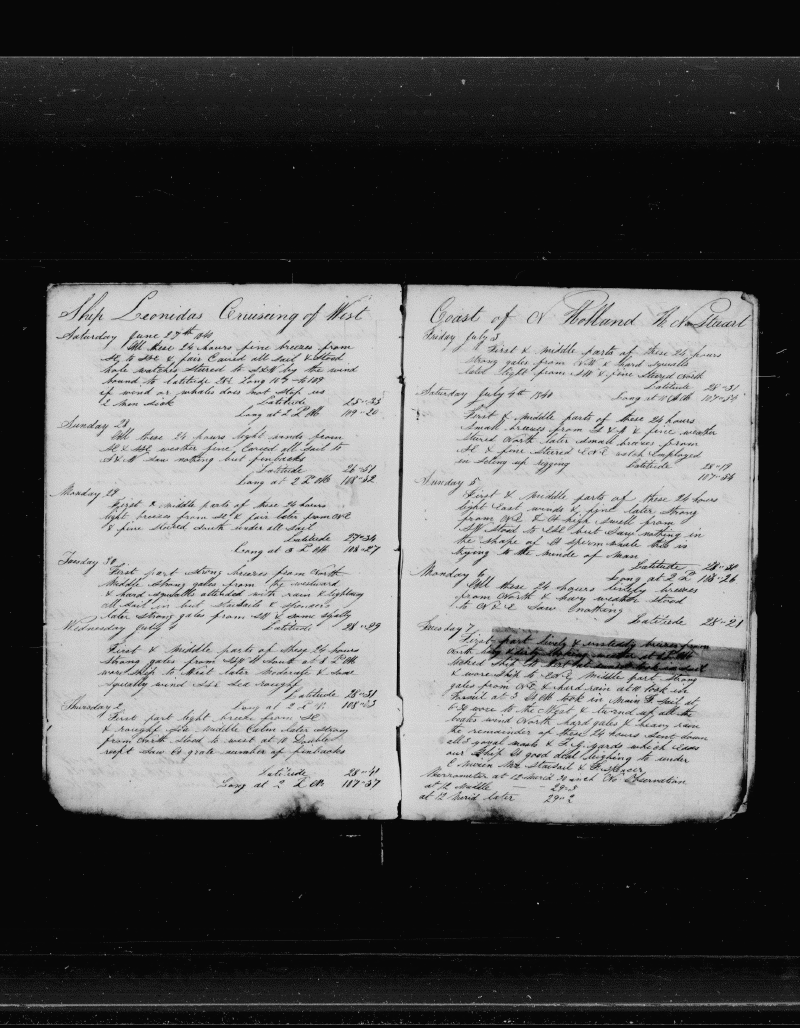 Ship Leonidas Cruiseing of West
Saturday June 27th 1840
All these 24 hours fine breezes from
SE to SSE & fair Caried all Sail & Stood
hole watches Stered to S&W by the wind
bound to latitude 28 Long 107 to 109
if wind or whales does not Stop us
2 men Sick Latitude 25-33
Long at 2 P M 109-20
Sunday 28
All these 24 hours light winds from
SE & SSE weather fine Caried all Sail to
S & W Saw nothing but finbacks
Latitude 26-51
Long at 2 P M 108-52
Monday 29
First & middle parts of these 24 hours
light breezes from SE & fair later from NE
& fine Stered South under all Sail
Latitude 27-34
Long at 3 P M 108-27
Tuesday 30
First part Strong breezes from North
Middle Strong gales from the westward
& hard Squalls attended with rain & lightning
all Sail in but Staysails & Spencers
later Strong gales from SW & some Squally
Wednesday July 1 Latitude 28-29
First & Middle parts of these 24 hours
Strong gales from SSW to South at 1 P M
wore Ship to West later Moderate &
Squally wind SSE Sea rough
Latitude 28-31
Thursday 2 Long at 2 P M 108-23
First part light breeze from SE
& rough Sea Middle Calm later Strong
from North Stood to west at
reept Saw a grate number of finbacks
Latitude 28-41
Long at 2 P M 107-57
Coast of N Holland W. N. Stuart
Friday July 3
First & Middle parts of these 24 hours
Strong gales from NW & hard Squalls
later light from SW & fine Stered North
Latitude 28-31
Saturday July 4th 1840 Long at 107-55
First & Middle parts of these 24 hours
Small breezes from S & fine weather
Stered North later Small breezes from
SE & fine Stered ENE watch Employed
in Seting up rigging Latitude 28-19
107-56
Sunday 5
First & Middle parts of these 24 hours
light East winds & fine later Strong
from NE & high Swell from
SW Stood to SSE but Saw nothing in
the Shape of a Sperm whale this is
trying to the minde of Man
Latitude 28-30
Monday 6 Long at 2 P 108-26
All these 24 hours lively breezes
from North & hevy weather Stood
to NE Saw nothing
Latitude 28-21
Tuesday 7
First part lively & unsteady breezes from
North
tacked Ship to West
& wore Ship to ENE Middle part Strong
gales from NE & hard rain at 11 took in
Fsail at 3 took in Main T Sail at
6 wore to the West & furled up all the
wind North hard gales & heavy rain
the remainder of these 24 hours Sent down
all 3 royal masts & T G yards which eases
our Ship a good deal leighing to under
a Mizen Stausail & Spencer
Barrometer at 12 Merid 30 inch No Observation
at 12 Middle 29-8
at 12 Merid later 29-2